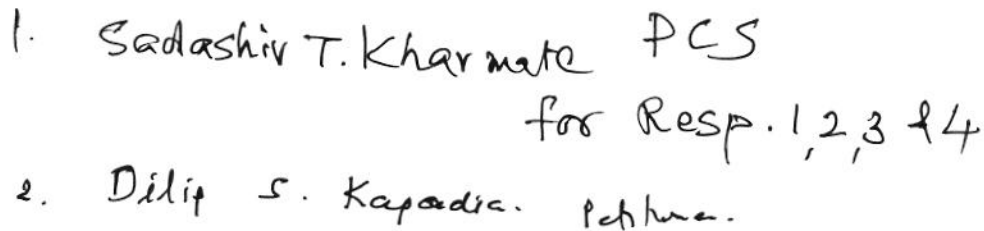 1. Sadashiv T. Kharmate PCS
for Resp. 1,2,3 & 4
2. Dilip S. Kapadia. Petitioner.